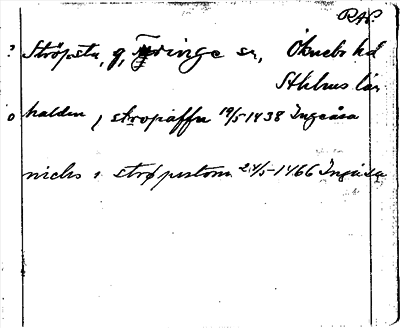 RAP.
? Ströpsta, g, Turinge sn, Öknebo hd
Sthlms län
o halden i stropaffn 19/5-1438 Ingeåsa
nicls i strøpustom 24/5-1466 Ingåsa